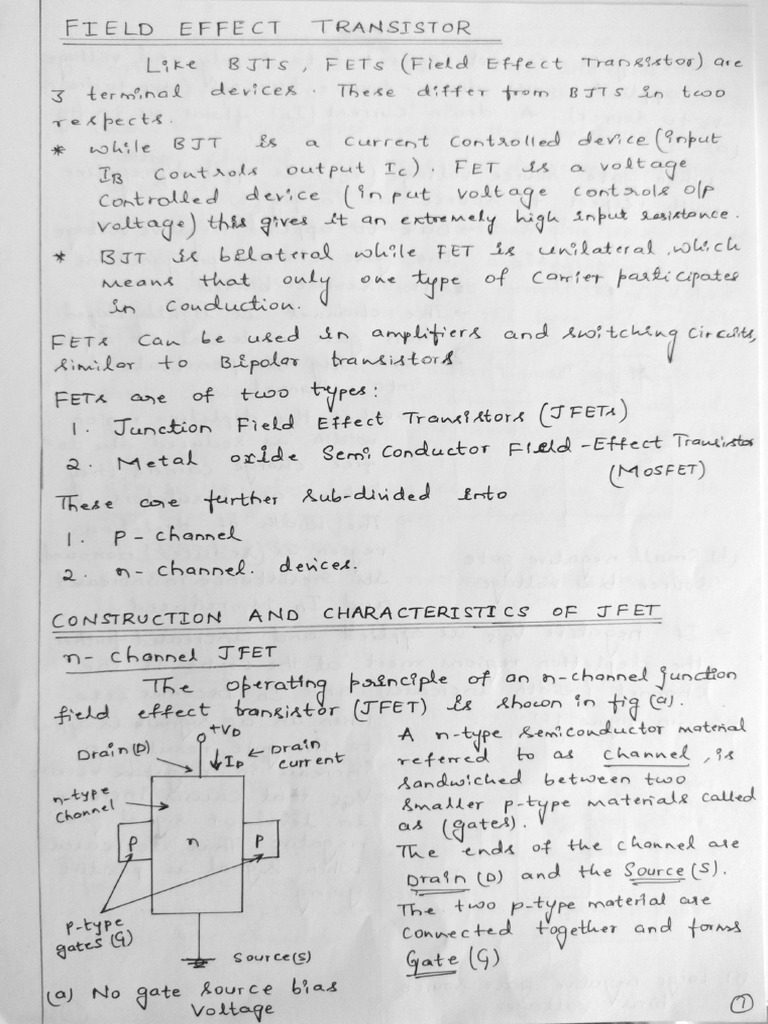 FIELD EFFECT TRANSISTOR
Like BJTs, FETs (Field Effect Transistor) are
3 terminal devices. These differ from BJTS in two
respects.
* while BJT is a current controlled device (input
IB controls output Ic). FET is a voltage
controlled device (input voltage controls o/p
voltage) this gives it an extremely high input resistance.
* BJT is bilateral while FET is unilateral, which
means that only one type of carrier participates
in conduction.
FETs can be used in amplifiers and switching circuits,
similar to Bipolar transistors
FETs are of two types:
1. Junction Field Effect Transistors (JFETs)
2. Metal oxide Semi Conductor Field-Effect Transistor
(MOSFET)
These are further sub-divided into
1. P-channel
2. n-channel. devices.
CONSTRUCTION AND CHARACTERISTICS OF JFET
n-channel JFET
The operating principle of an n-channel junction
field effect transistor (JFET) is shown in fig (a).
+VD
Drain(D)
ID ← Drain
current
n-type
channel
P
n
P
P-type
gates (G)
Source(s)
(a) No gate source bias
voltage
A n-type semiconductor material
referred to as channel, is
sandwiched between two
smaller p-type materials called
as (gates).
The ends of the channel are
Drain (D) and the Source (S).
The two p-type material are
connected together and forms
Gate (G)
1